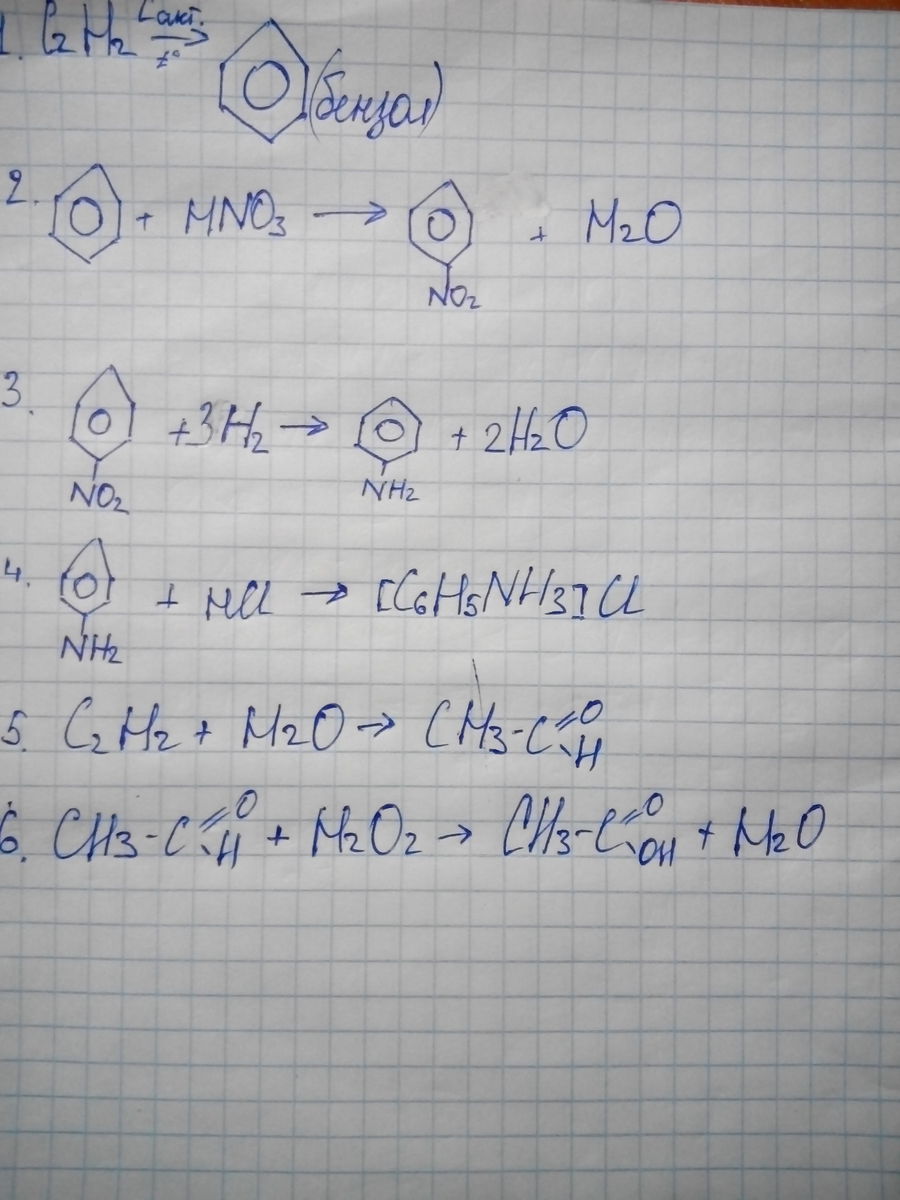 1. C2H2 Cакт. t° → (бензол)
2. + HNO3 → + H2O
NO2
3. + 3H2 → + 2H2O
NO2 NH2
4. + HCl → [C6H5NH3]Cl
NH2
5. C2H2 + H2O → CH3-C=O H
6. CH3-C=O H + H2O2 → CH3-C=O OH + H2O